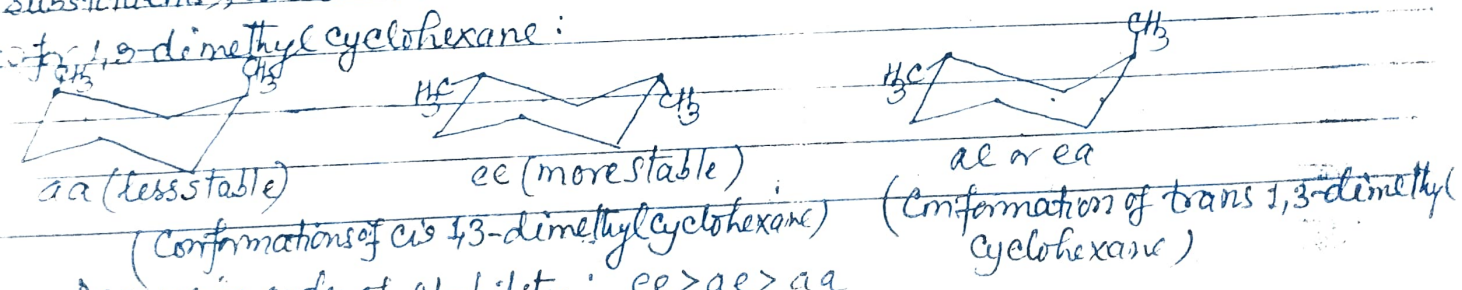 for 1,3-dimethyl cyclohexane :
CH3 CH3 H3C CH3 H3C CH3
aa (less stable) ee (more stable) ae or ea
(Conformations of cis 1,3-dimethylcyclohexane) (Conformation of trans 1,3-dimethyl
cyclohexane)
ee > ae > aa